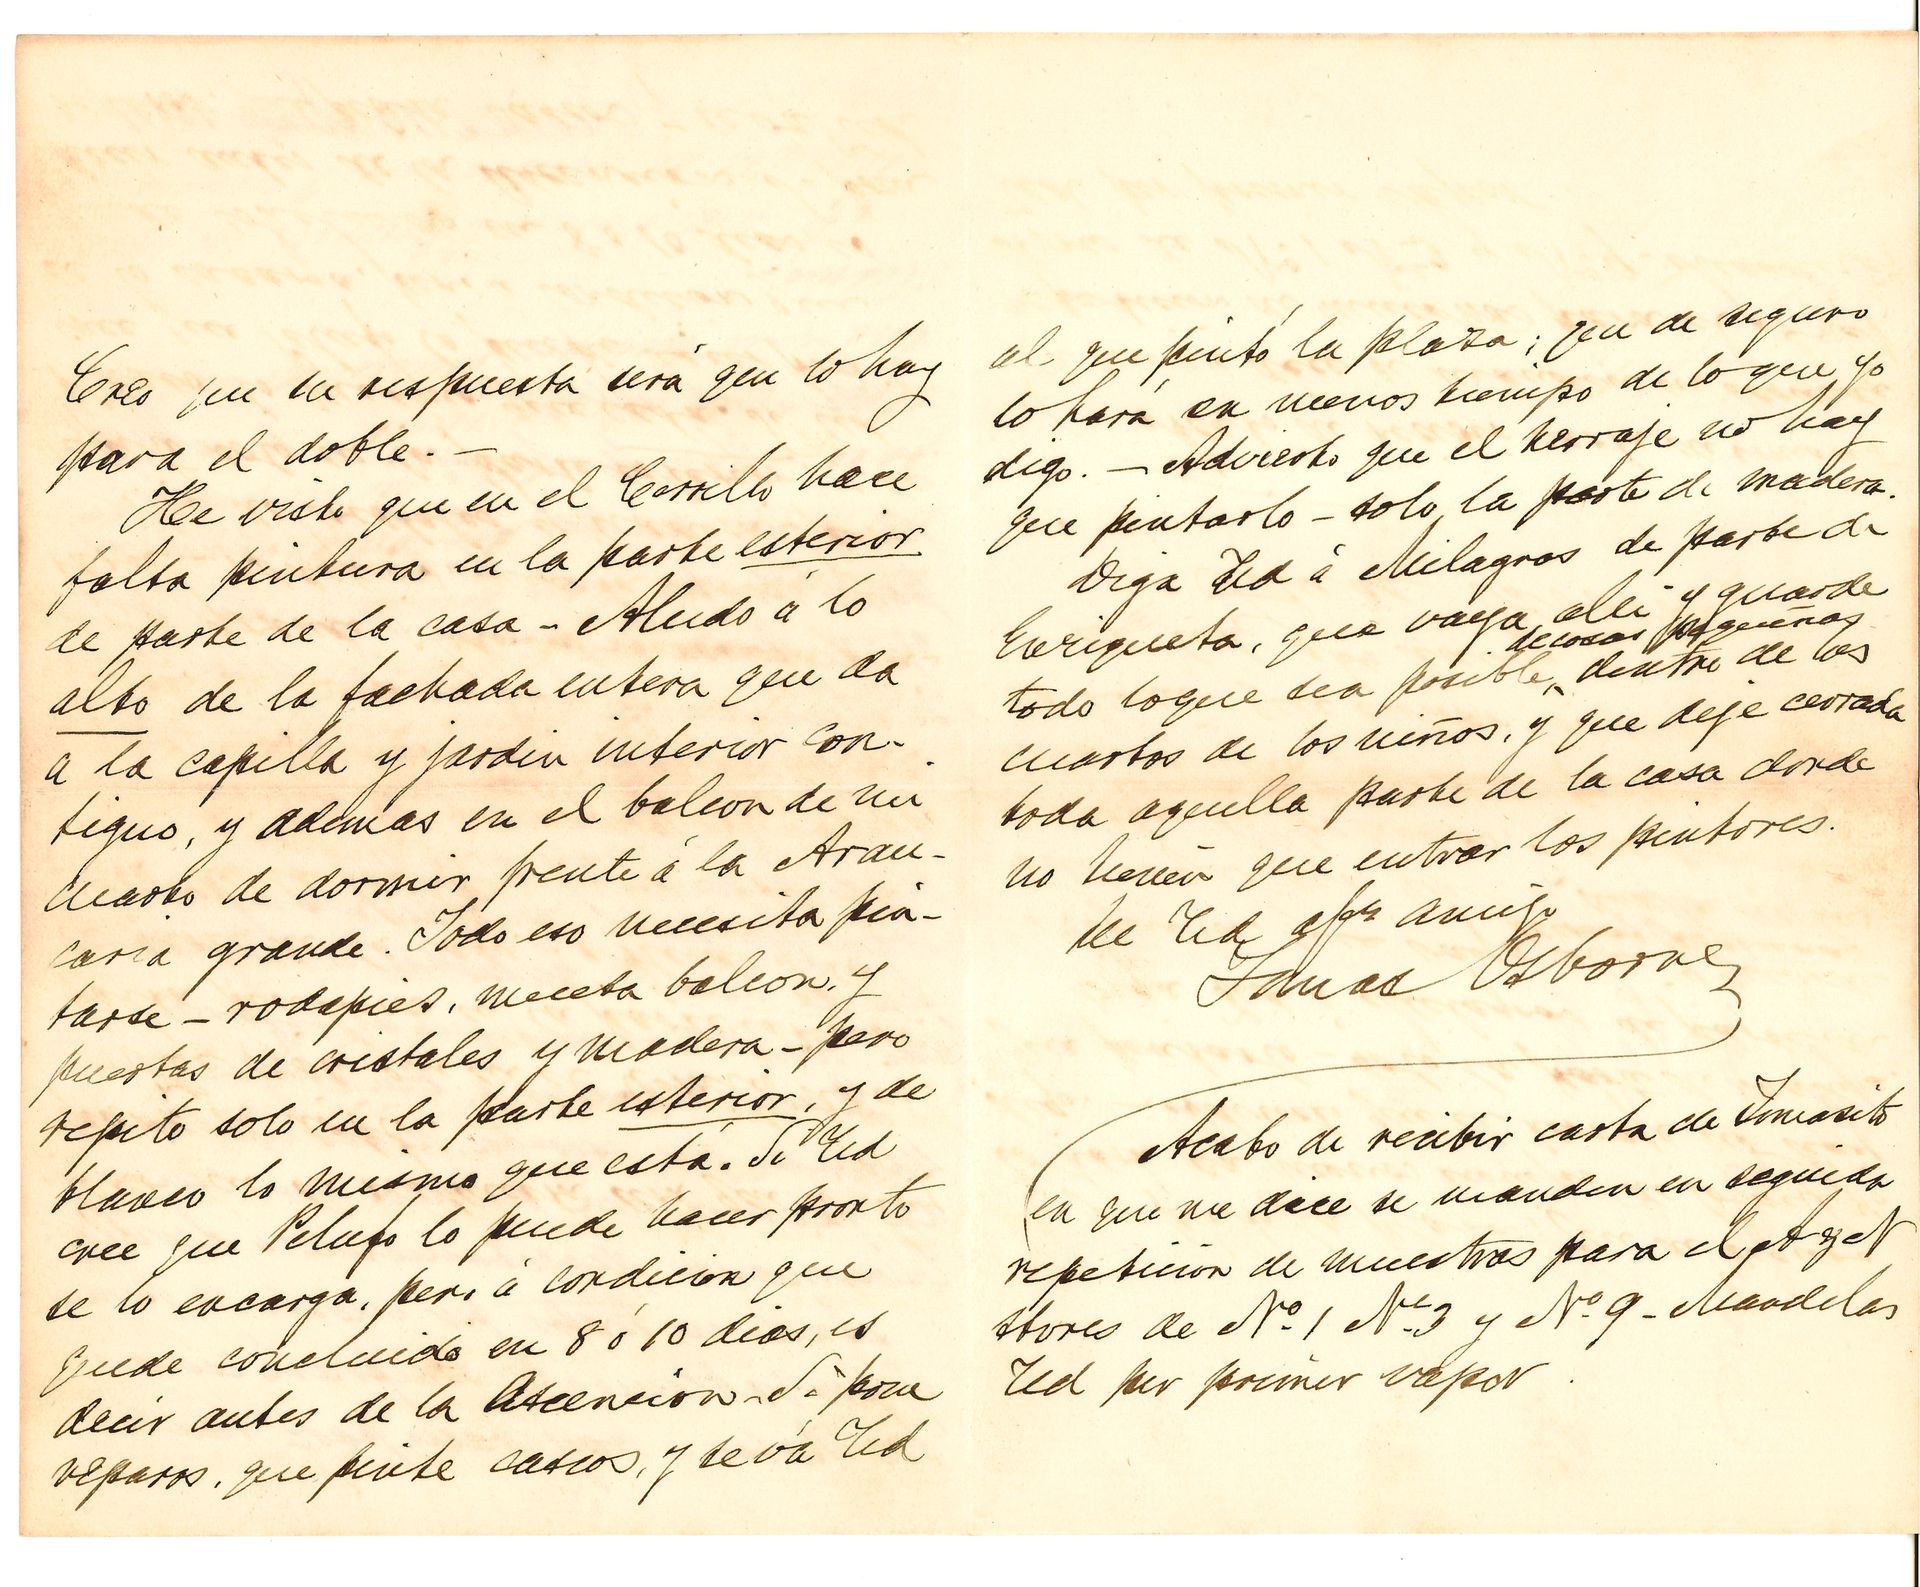 Creo que su respuesta será que lo hay
para el doble. —
He visto que en el Cerrillo hace
falta pintura en la parte esterior
de parte de la casa – Aludo á lo
alto de la fachada entera que da
a la capilla y jardin interior con-
tiguo, y ademas en el balcon de mi
cuarto de dormir frente á la Arau-
caria grande. Todo eso necesita pin-
tarse – rodapies, meseta balcon, y
puertas de cristales y madera – pero
repito solo en la parte esterior, y de
blanco lo mismo que está. Si Ud
cree que Pelufo lo puede hacer pronto
se lo encarga, pero á condicion que
quede concluido en 8 ó 10 dias, es
decir antes de la Ascencion – Si pone
reparos, que pinte cascos, y se vá Ud
al que pintó la plaza; que de seguro
lo hará en menos tiempo de lo que yo
digo. — Advierto que el herraje no hay
que pintarlo – solo la parte de madera.
Diga Ud á Milagros de parte de
Enriqueta, que vaya alli y guarde
de cosas pequeñas
todo lo que sea posible, dentro de los
cuartos de los niños, y que deje cerrada
toda aquella parte de la casa donde
no tienen que entrar los pintores.
De Ud afmo amigo
Tomas Osborne
Acabo de recibir carta de Tomasito
en que me dice se manden en seguida
repeticion de muestras para el A y N
Stores de Nº 1 Nº 3 y Nº 9 – Mandelas
Ud por primer vapor.